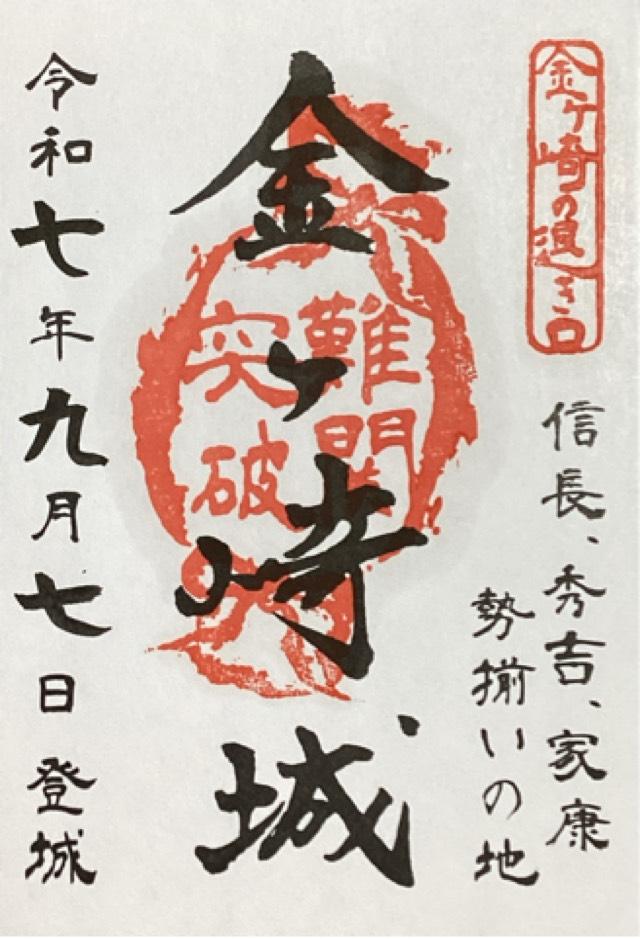 金ヶ崎の退き口
信長、秀吉、家康
勢揃いの地
金ヶ崎城
難関
突破
令和七年九月七日登城